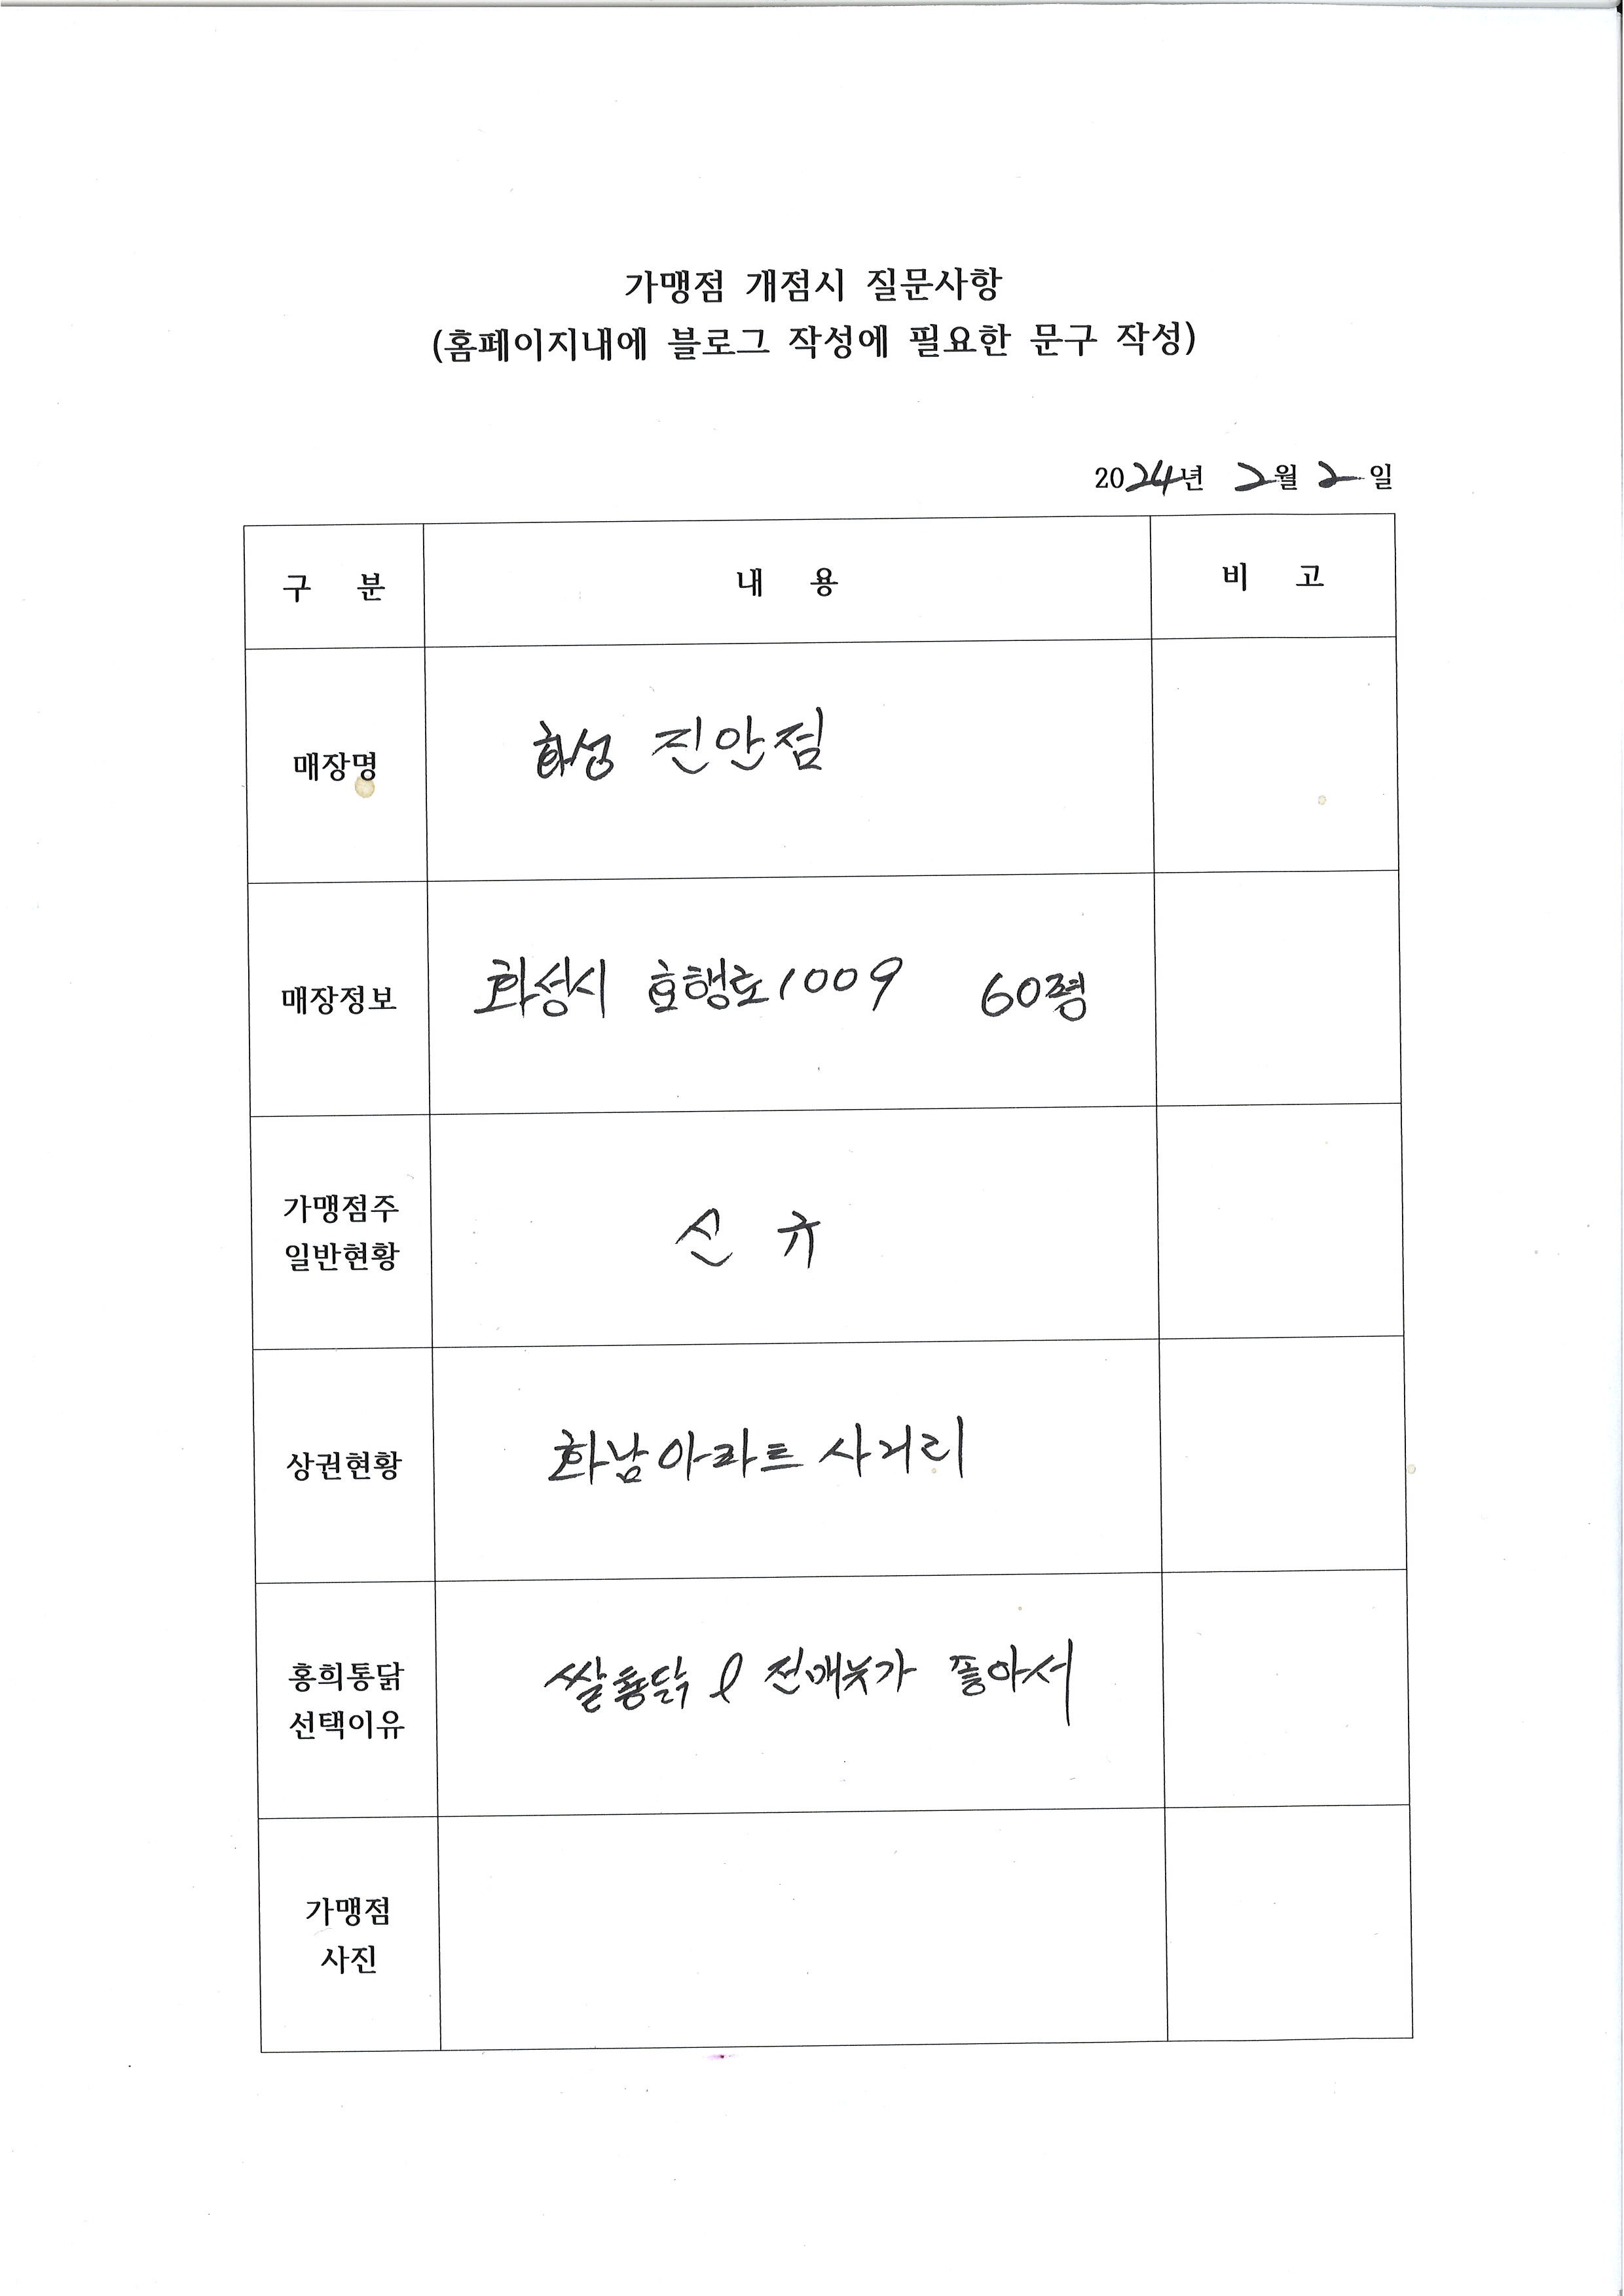 가맹점 개점시 질문사항
(홈페이지내에 블로그 작성에 필요한 문구 작성)
2024년 2월 2일
구 분 내 용 비 고
매장명 화성 진안점
매장정보 화성시 효행로1009 60평
가맹점주
일반현황
신 규
상권현황 화남아파트 사거리
홍희통닭
선택이유
쌀통닭 & 전메뉴가 좋아서
가맹점
사진